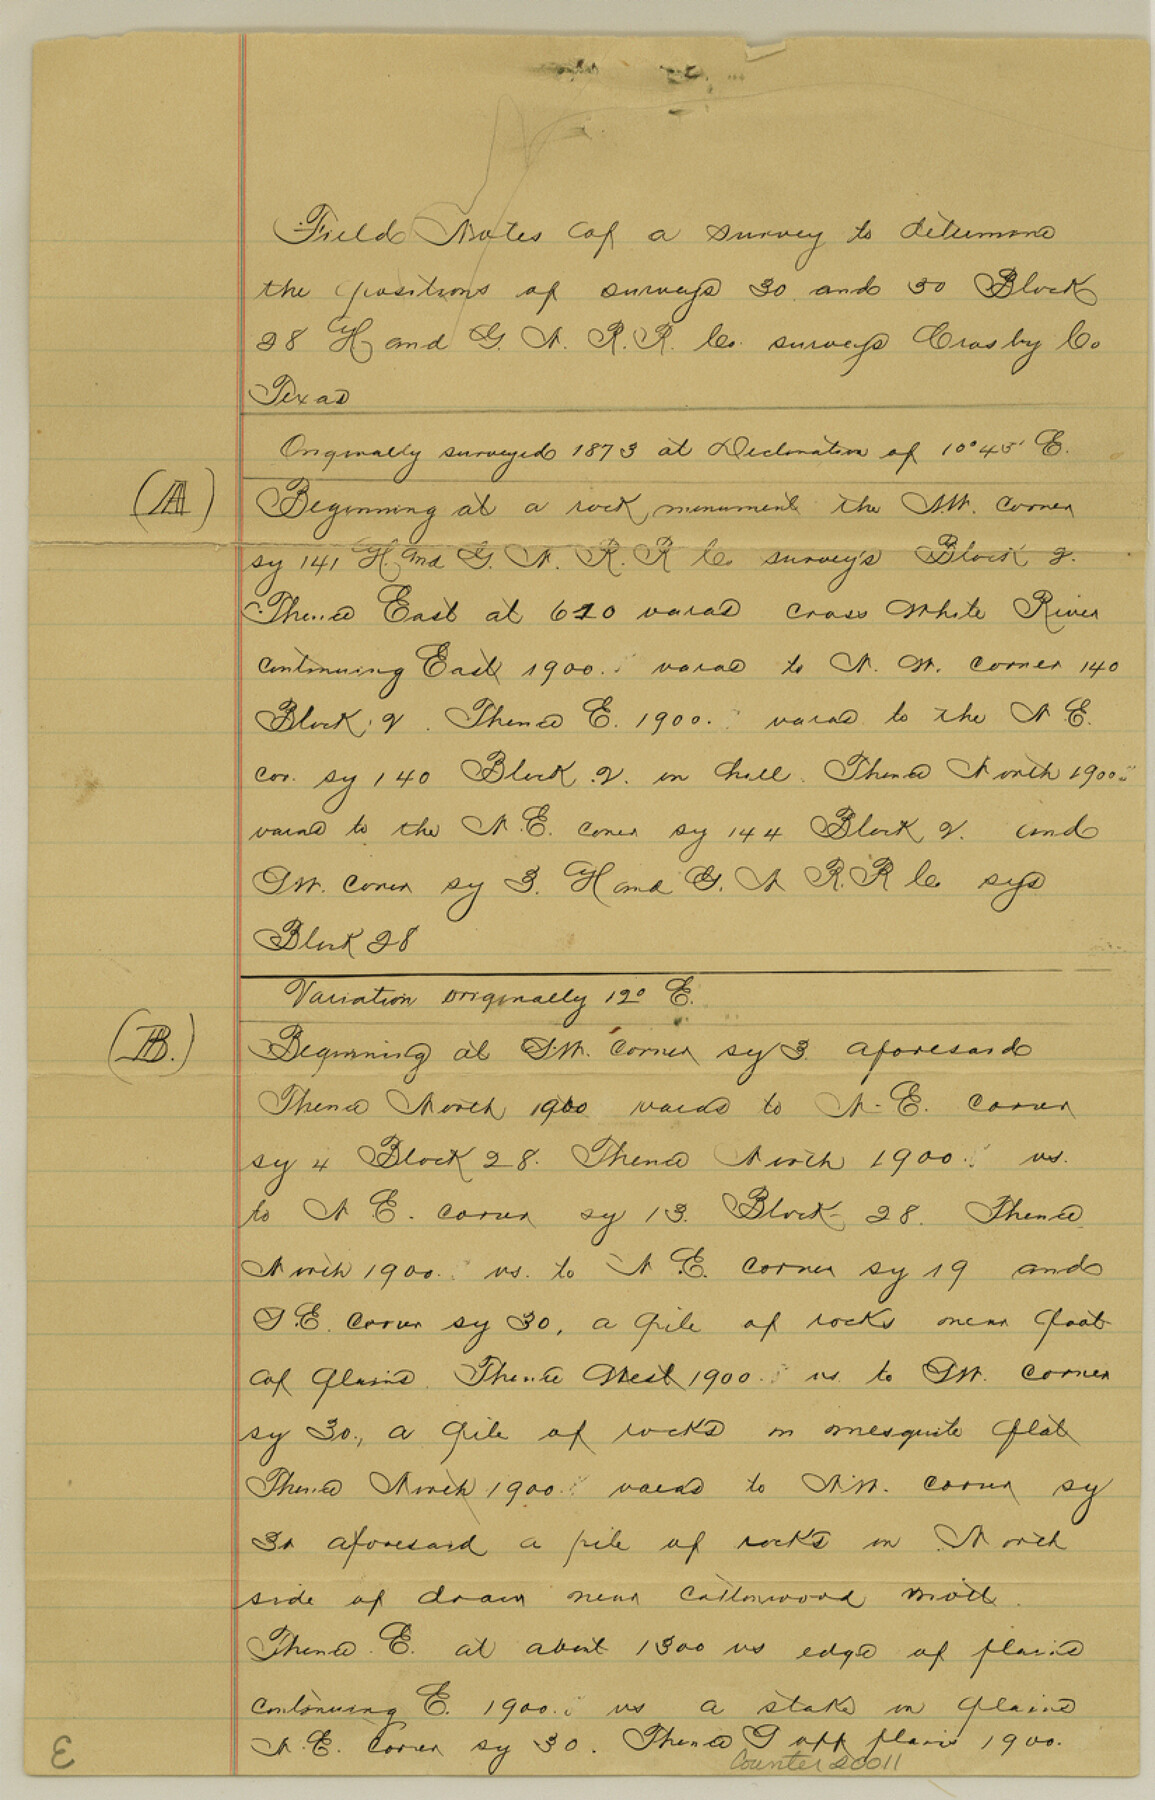 Field Notes of a survey to determine
the positions of surveys 30 and 30 Block
28 H and G. N. R.R. Co. surveys Crosby Co
Texas
Originally surveyed 1873 at Declination of 10° 45' E.
(A)
Beginning at a rock monument the N.W. corner
sy 141 H. and G. N. R. R Co. survey's Block 2.
Thence East at 620 varas cross White River
continuing East 1900. varas to N. W. corner 140
Block 2. Thence E. 1900. varas to the N.E.
cor. sy 140 Block 2. on hill. Thence North 1900.
varas to the N.E. coner sy 144 Block 2. and
SW. coner sy 3. H and G. N R.R Co sys
Block 28
Variation originally 12° E.
(B.)
Beginning at S.W. corner sy 3 aforesaid
Thence North 1900 varas to N.E. corner
sy 4 Block 28. Thence North 1900. vs.
to N E. corner sy 13 Block 28. Thence
North 1900. vs. to N E. corner sy 19 and
S.E. corner sy 30, a pile of rocks near foot
of plains. Thence West 1900. vs. to SW. corner
sy 30., a pile of rocks in mesquite flat
Thence North 1900. varas to N.W. corner sy
30 aforesaid a pile of rocks on North
side of draw near cottonwood mott.
Thence E. at about 1300 vs edge of plains
continuing E. 1900. vs a stake in plains
N.E. corner sy 30. Thence S off plains 1900.
counter 20011
3